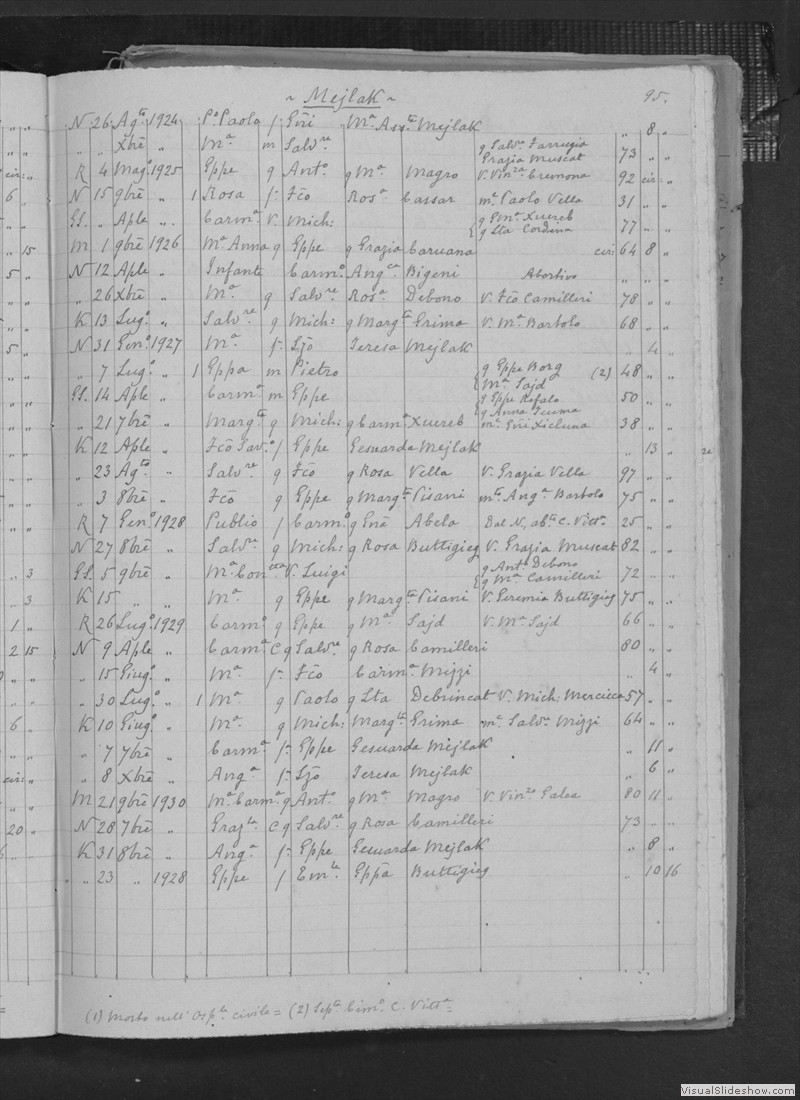 ~ Mejlak ~ 95.
N 26 Agto 1924 Po Paolo f Giñi Ma Assta Mejlak „ 8 „
„ „ Xbre „ Ma m Salvre g Salvo Farrugia
Grazia Muscat 73 „ „
R 4 Mago 1925 Gppe g Anto g Ma Magro V. Vinza Cremona 92 cir: „
N 15 9bre „ 1 Rosa f: Fčo Rosa Cassar ma Paolo Vella 31 „ „
GS. „ Aple „ Carma V. Mich: g Gma Xuereb
g Lta Cordina 77 „ „
M 1 9bre 1926 Ma Anna g Gppe g Grazia Caruana cir: 64 8 „
N 12 Aple „ Infante Carmo Angca Bigeni Abortivo „ „ „
„ 26 Xbre „ Ma g Salvre Rosa Debono V. Fčo Camilleri 78 „ „
K 13 Lugo „ Salvre g Mich: g Margta Grima V. Ma Bartolo 68 „ „
N 31 Geno 1927 Ma f: Ljo Teresa Mejlak „ 4 „
„ 7 Lugo „ 1 Gppa m Pietro g Gppe Borg (2) 48 „ „
Ma Sajd
GS. 14 Aple „ Carma m Gppe g Gppe Refalo 50 „ „
g Anna Teuma
„ 21 7bre „ Margta g Mich: g Carma Xuereb ma Giñi Xicluna 38 „ „
K 12 Aple „ Fčo Savo f Gppe Gesuarda Mejlak „ 13 „
„ 23 Agto „ Salvre g Fčo g Rosa Vella V. Grazia Vella 97 „ „
„ 3 8bre „ Fčo g Gppe g Margta Pisani mto Anga Bartolo 75 „ „
R 7 Geno 1928 Publio f Carmo g Gña Abela Dal N, abte C. Vitta 25 „ „
N 27 8bre „ Salvre g Mich: g Rosa Buttigieg V. Grazia Muscat 82 „ „
GS. 5 9bre „ Ma Concetta V. Luigi g Anto Debono
g Ma Camilleri 72 „ „
K 15 „ „ Ma g Gppe g Margta Pisani V. Geremia Buttigieg 75 „ „
R 26 Lugo 1929 Carmo g Gppe g Ma Sajd V. Ma Sajd 66 „ „
N 9 Aple „ Carma C g Salvre g Rosa Camilleri 80 „ „
„ 15 Giugo „ Ma f: Fčo Carma Mizzi „ 4 „
„ 30 Lugo „ 1 Ma g Paolo g Lta Debrincat V. Mich: Mercieca 57 „ „
K 10 Giugo „ Ma g Mich: Margta Grima ma Salvo Mizzi 64 „ „
„ 7 7bre „ Carma f: Gppe Gesuarda Mejlak „ 11 „
„ 8 Xbre „ Anga f: Ljo Teresa Mejlak „ 6 „
M 21 9bre 1930 Ma Carma g Anto g Ma Magro V. Vinzo Galea 80 11 „
N 28 7bre „ Grazla C g Salvre g Rosa Camilleri 73 „ „
K 31 8bre „ Anga f: Gppe Gesuarda Mejlak „ 8 „
„ 23 „ 1928 Gppe f Emle Gppa Buttigieg „ 10 16
(1) Morto nell' Osple civile = (2) Septa Cimo C. Vitta =
VisualSlideshow.com